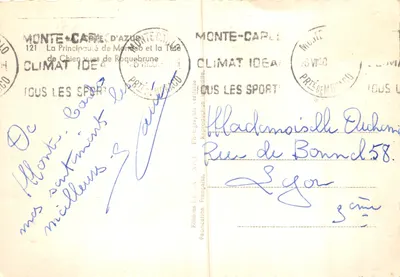 MONTE-CARLO
CLIMAT IDEAL
TOUS LES SPORTS
CÔTE D'AZUR
121 La Principauté de Monaco et la Tête
de Chien vues de Roquebrune
MONTE-CARLO
CLIMAT IDEAL
TOUS LES SPORTS
De
Monte-Carlo
mes sentiments les
meilleurs
Mademoiselle
Rue de Bonnel 58.
Lyon
3ème